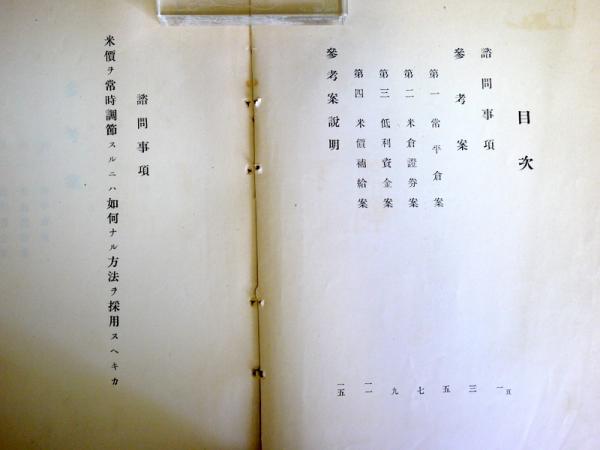 目次
諮問事項 一頁
參考案 三
第一 常平倉案 五
第二 米倉證券案 七
第三 低利資金案 九
第四 米價補給案 一一
參考案説明 一五
諮問事項
米價ヲ常時調節スルニハ如何ナル方法ヲ採用スヘキカ